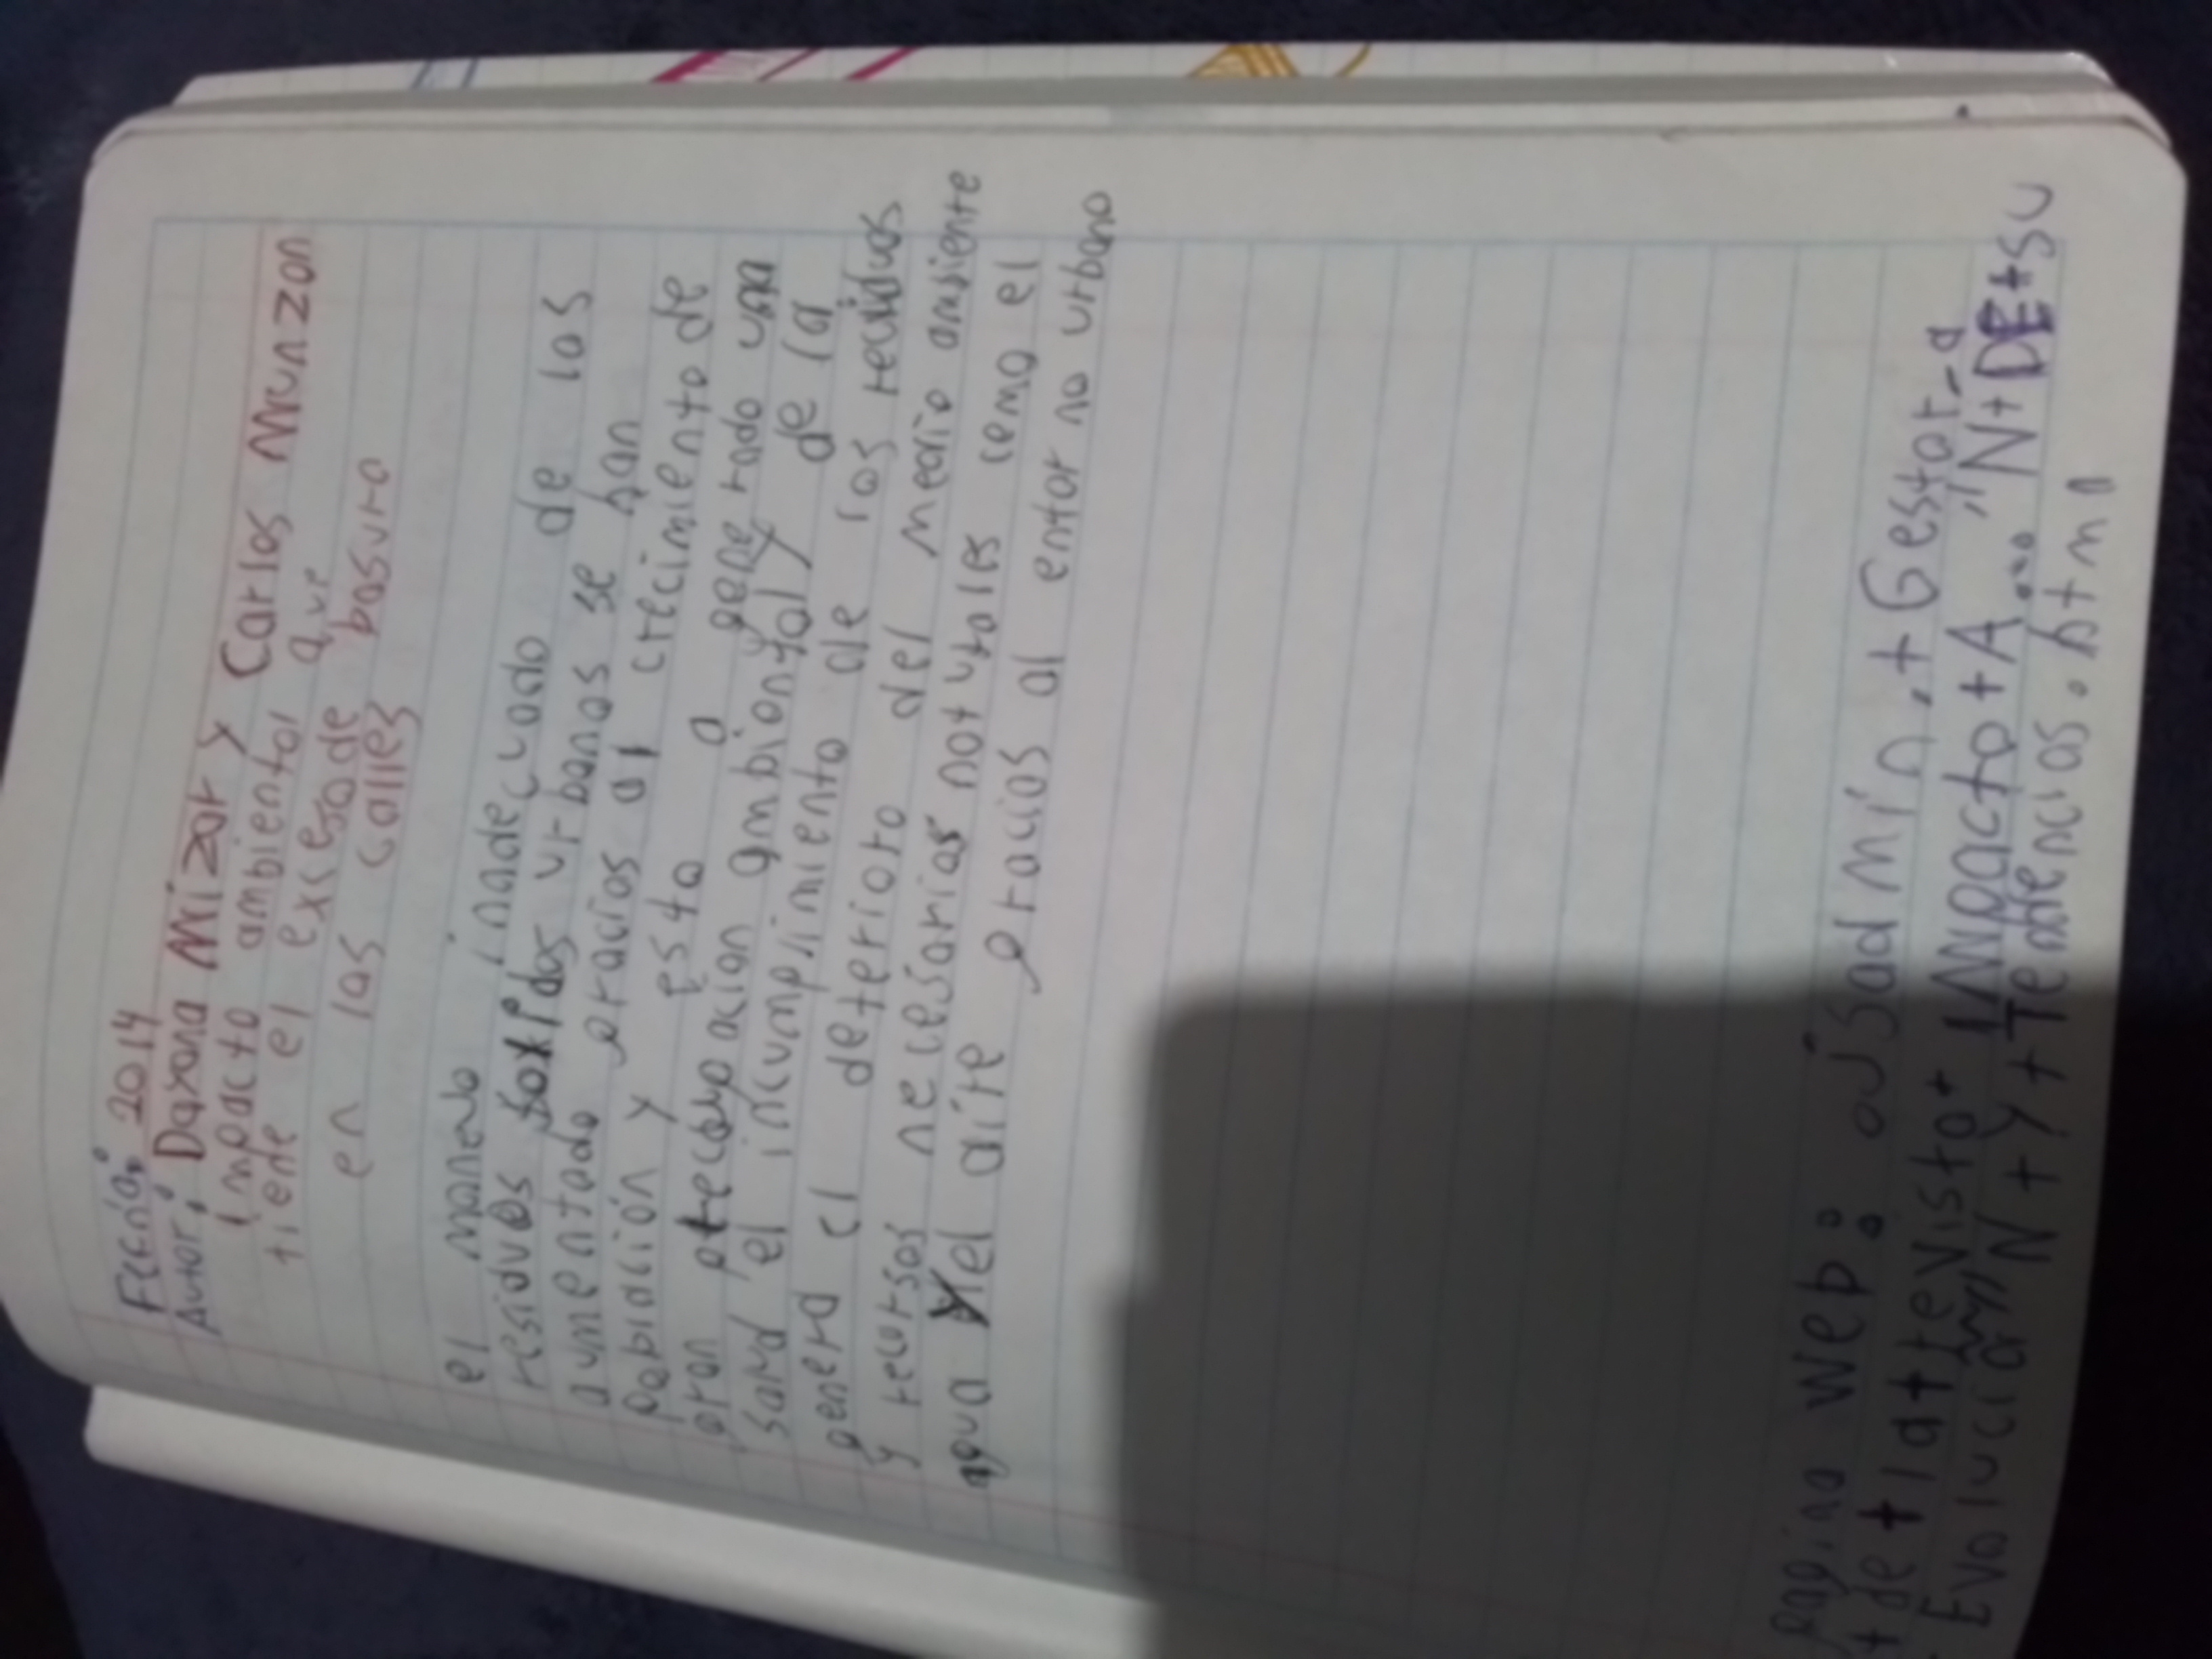 Fecha: 2014
Autor: Daxana Mizar y Carlos Munzon
impacto ambiental que
tiene el exceso de basura
en las calles
el manejo inadecuado de los
residuos urbanos se han
aumentado gracias al crecimiento de
población y esto a generado una
gran preocupacion ambiontal y de la
sand el incumplimiento de los reciduos
genera el deterioro del medio ansiente
y recorsos necesarios naturales como el
agua y el aire gracias al entor no urbano
pagina web: ojsadmin,+Gestor_a
+de+la+revista+Impacto+A
Evolución+y+Tendencias.html